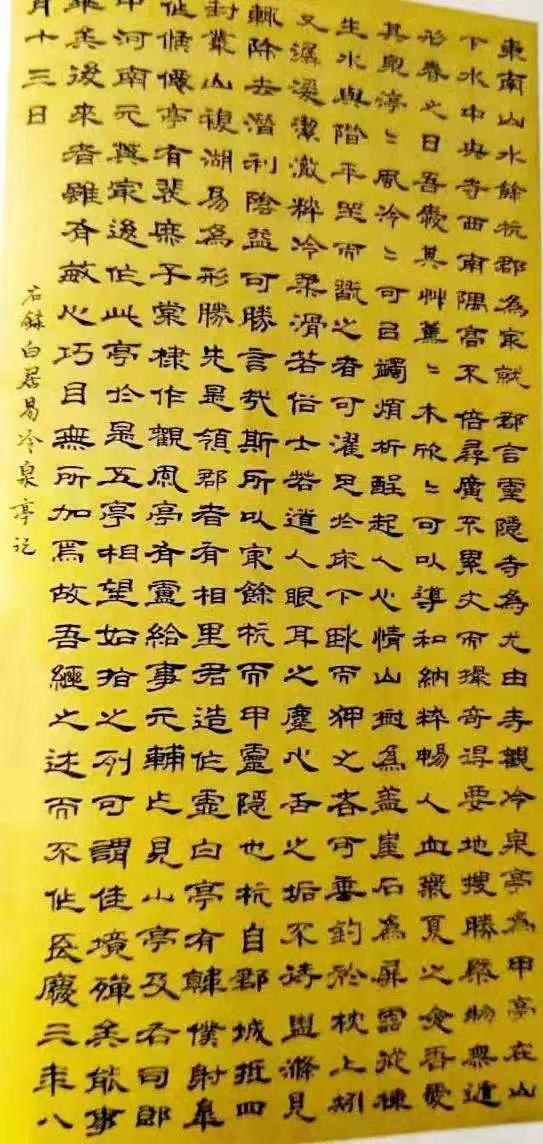 東南山水餘杭郡為冣就郡言靈隱寺為尤由寺觀冷泉亭為甲亭在山
下水中央寺西南隅高不倍尋廣不累丈而撮奇得要地搜勝槩物無遁
形春之日吾愛其艸薰〻木欣〻可以導和納粹暢人血氣夏之夜吾愛
其泉渟〻風泠〻可㠯蠲煩析酲起人心情山樹為蓋崖石為屏雲從棟
生水與階平坐而翫之者可濯足於床下臥而狎之者可垂釣於枕上矧
又潺湲潔澈粹冷柔滑若俗士若道人眼耳之塵心舌之垢不待盥滌見
輒除去潛利陰益可勝言哉斯所以冣餘杭而甲靈隱也杭自郡城抵四
封叢山複湖易為形勝先是領郡者有相里君造作虛白亭有韓僕射皋
作候僊亭有裴庶子棠棣作觀風亭有盧給事元輔作見山亭及右司郎
中河南元藇冣後作此亭於是五亭相望如指之列可謂佳境殫矣能事
畢矣後來者雖有敏心巧目無所加焉故吾繼之述而不作長慶三年八
月十三日
右錄白居易冷泉亭記